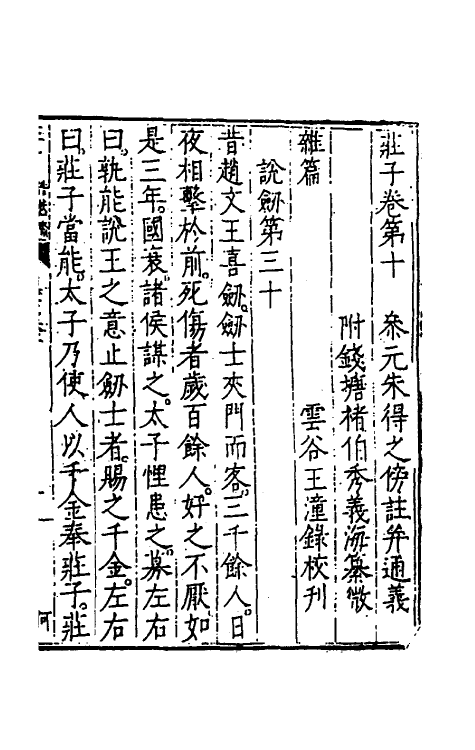 莊子卷第十　　叅元朱得之傍註并通義
附錢塘褚伯秀義海纂微
雜篇　　　　　雲谷王潼錄校刋
說劒第三十
昔趙文王喜劒。劒士夾門而客。三千餘人。日
夜相擊於前。死傷者歲百餘人。好之不厭如
是三年。國衰。諸侯謀之。太子悝患之。募左右
曰。孰能說王之意止劒士者。賜之千金。左右
曰。莊子當能。太子乃使人以千金奉莊子。莊